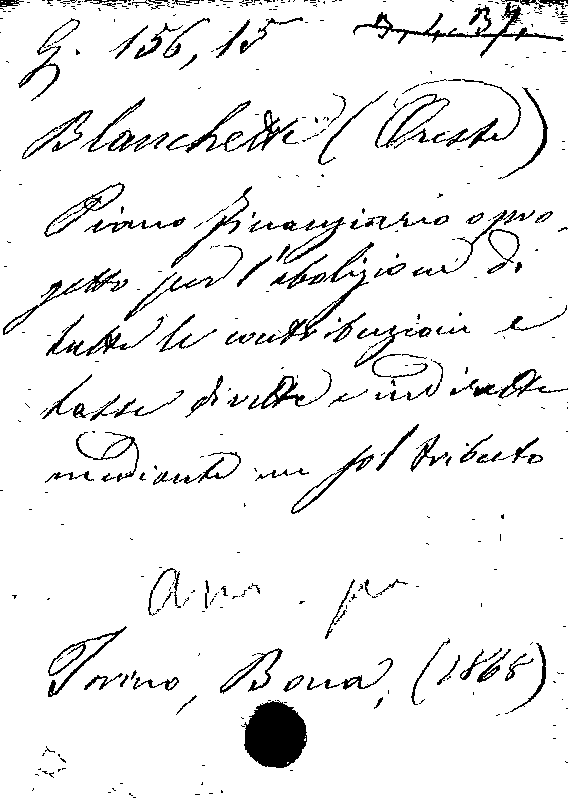 G. 156, 15
Blanchetti (Oreste)
Piano finanziario o pro-
getto per l'abolizione di
tutte le contribuzioni e
tasse dirette e indirette
mediante un sol tributo
Torino, Bona, (1868)